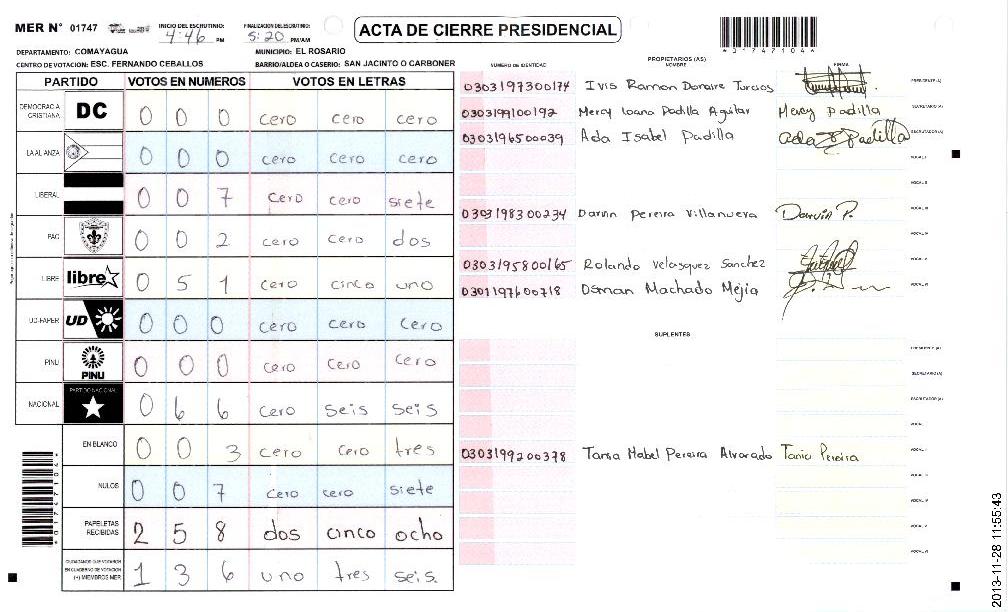 MER N° 01747
INICIO DEL ESCRUTINIO:
4:46 PM
FINALIZACION DEL ESCRUTINIO:
5:20 PM/AM
ACTA DE CIERRE PRESIDENCIAL
*01747104*
DEPARTAMENTO: COMAYAGUA
MUNICIPIO: EL ROSARIO
CENTRO DE VOTACION: ESC. FERNANDO CEBALLOS
BARRIO/ALDEA O CASERIO: SAN JACINTO O CARBONER
PARTIDO VOTOS EN NUMEROS VOTOS EN LETRAS
DEMOCRACIA CRISTIANA DC 0 0 0 cero cero cero
LA ALIANZA 0 0 0 cero cero cero
LIBERAL 0 0 7 cero cero siete
PAC 0 0 2 cero cero dos
LIBRE libre 0 5 1 cero cinco uno
UD-FAPER UD 0 0 0 cero cero cero
PINU PINU 0 0 0 cero cero cero
NACIONAL PARTIDO NACIONAL 0 6 6 cero seis seis
EN BLANCO 0 0 3 cero cero tres
NULOS 0 0 7 cero cero siete
PAPELETAS RECIBIDAS 2 5 8 dos cinco ocho
CIUDADANOS QUE VOTARON EN CUADERNO DE VOTACION (+) MIEMBROS MER 1 3 6 uno tres seis
PROPIETARIOS (AS)
NUMERO DE IDENTIDAD NOMBRE FIRMA
0303197300174 Ivis Ramon Donaire Turcios PRESIDENTE (A)
0303199100192 Mercy Ioana Padilla Aguilar Mercy Padilla SECRETARIO (A)
0303196500039 Ada Isabel Padilla Ada I Padilla ESCRUTADOR (A)
VOCAL I
VOCAL II
0303198300234 Darvin Pereira Villanueva Darvin P. VOCAL III
VOCAL IV
0303195800165 Rolando Velasquez Sanchez VOCAL V
0301197600718 Osman Machado Mejia VOCAL VI
SUPLENTES
PRESIDENTE (A)
SECRETARIO (A)
ESCRUTADOR (A)
VOCAL I
0303199200378 Tania Mabel Pereira Alvorado Tania Pereira VOCAL II
VOCAL III
VOCAL IV
VOCAL V
VOCAL VI
2013-11-28 11:55:43